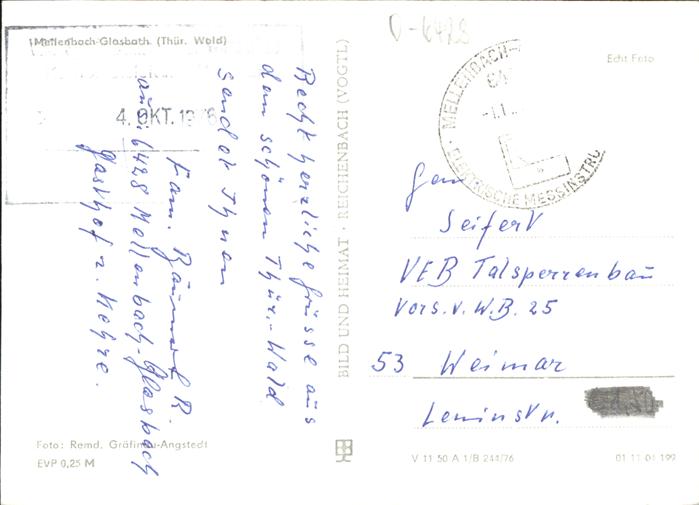 0-6428
Mellenbach-Glasbath (Thür. Wald)
Echt Foto
4. OKT. 1976
MELLENBACH-
ELEKTRISCHE MESSINSTRU
Recht herzliche Grüsse aus
dem schönen Thür.-Wald
sendet Ihnen
Fam. R.
aus: 6428 Mellenbach-Glasbach
Gasthof z. Kehre.
BILD UND HEIMAT · REICHENBACH (VOGTL)
Seifert
VEB Talsperrenbau
Vors. v. W.B. 25
53 Weimar
Leninstr.
Foto: Remd. Gräfinau-Angstedt
EVP 0,25 M
V 11 50 A 1/B 244/76
01 11 04 199